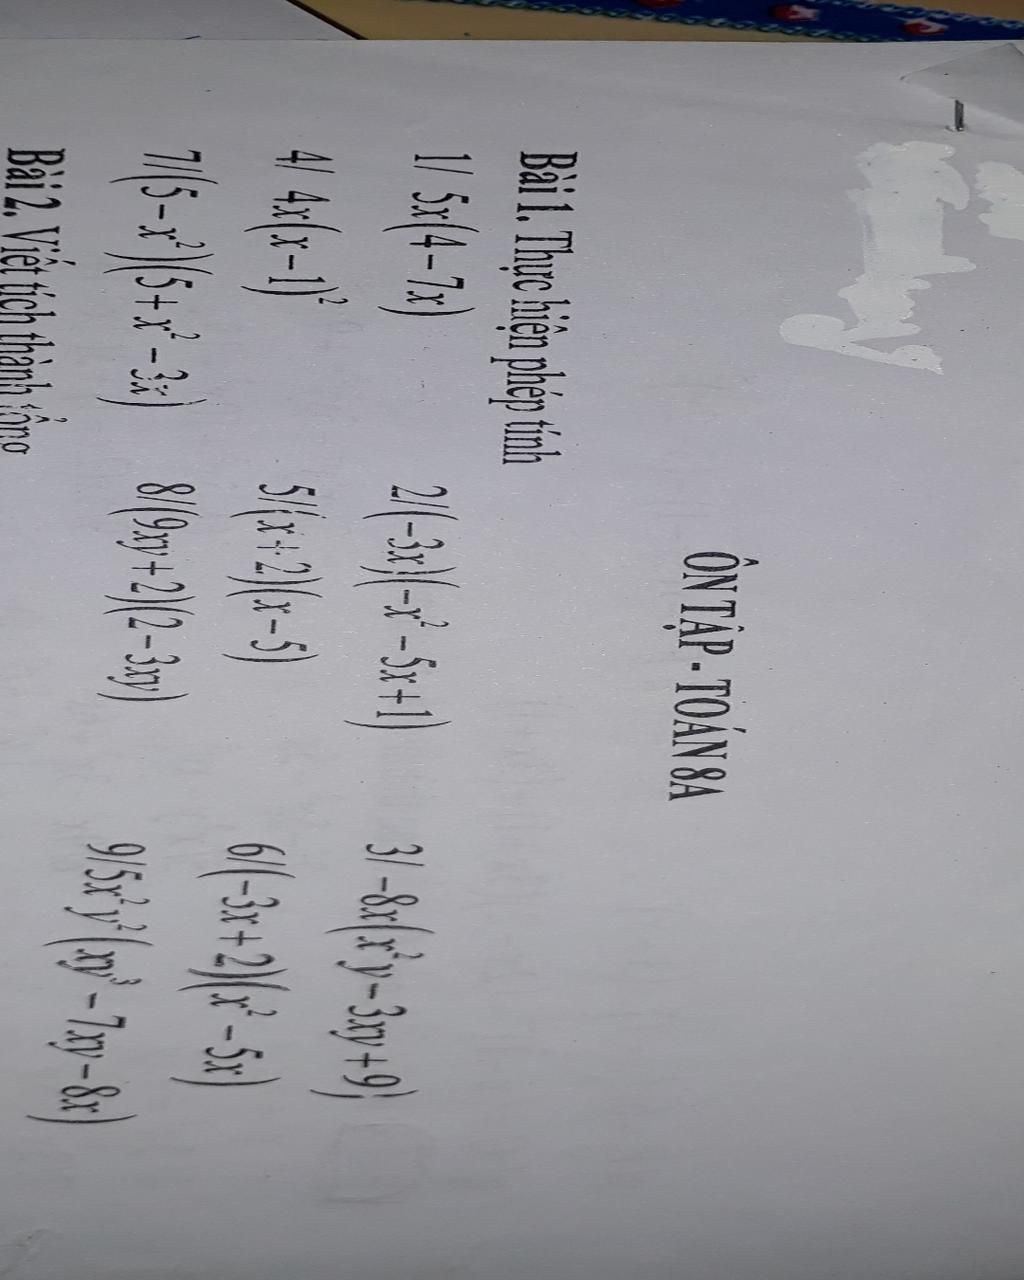 ÔN TẬP - TOÁN 8A
Bài 1. Thực hiện phép tính
1/ 5x(4 – 7x) 2/(–3x)(–x² – 5x + 1) 3/ –8x(x²y – 3xy + 9)
4/ 4x(x – 1)² 5/(x + 2)(x – 5) 6/(–3x + 2)(x² – 5x)
7/(5 – x²)(5 + x² – 3x) 8/(9xy + 2)(2 – 3xy) 9/5x²y²(xy³ – 7xy – 8x)
Bài 2. Viết tích thành tổng